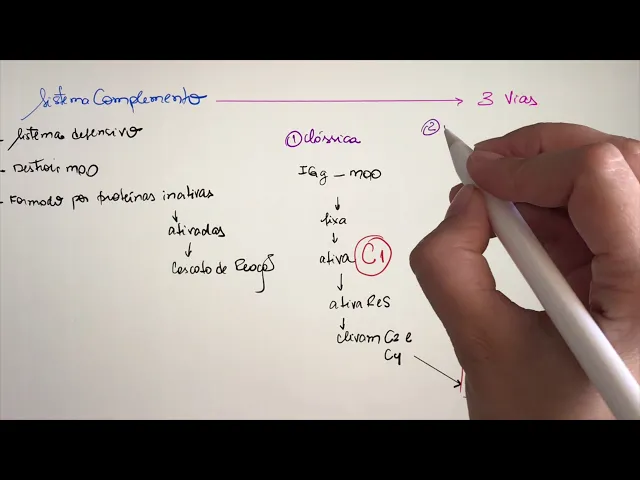 Sistema Complemento → 3 Vias
- Sistema defensivo
- Destroir mOO
- Formado por proteínas inativas
↓
ativadas
↓
Cascata de Reaçõs
① Clássica
IGg - mOO
↓
fixa
↓
ativa C1
↓
ativa Res
↓
clivam C2 e
C4
②